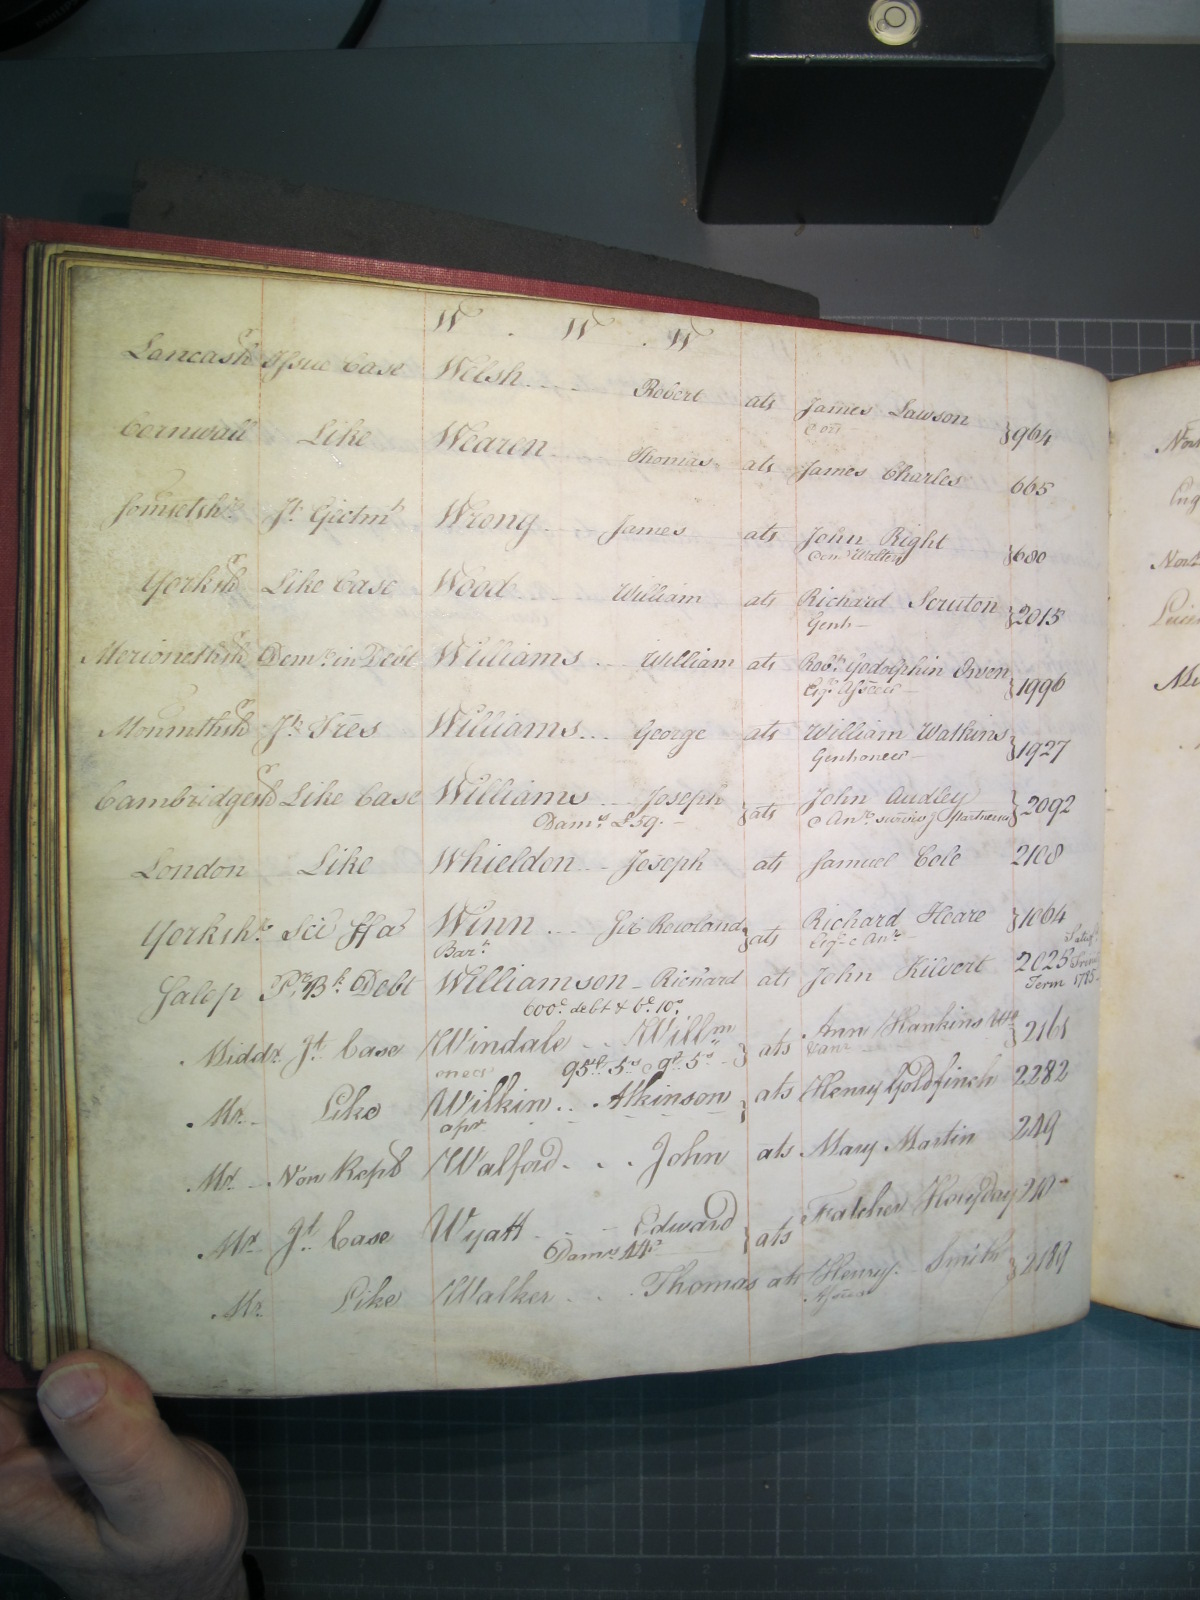 W . W . W
Lancash^r Issue Case Welsh.... Robert ats James Lawson } 964
Cornwall Like Wearen Thomas ats James Charles 665
Somsetsh^re J^t Ejectm^t Wrong James ats John Right } 680
Yorksh^r Like Case Wood William ats Richard Scruton } 2015
Gent
Merionethsh^r Dem^r in Debt Williams ... William ats Rob^t Godolphin Owen } 1996
Esq^r
Monmthsh^r J^t Tres Williams... George ats William Watkins } 1927
Cambridgesh^r Like Case Williams ... Joseph } ats John Audley } 2092
Dam^s £59. & An^r surviv^g Partners
London Like Whieldon ... Joseph ats Samuel Cole 2108
Yorksh^re Sci ffa^s Winn ... Sir Rowland } ats Richard Hoare } 1064
Bar^t Esq^r & An^r
Salop Debt Williamson - Richard ats John Kilvert 2025
600^£ debt & 6^£ 10^s Term 1785
Midd^x J^t Case Windale .. Will^m } ats Ann Hankins } 2161
95^£ 5^s & 9^£ 5^s
M^r. Like Wilkin .. Atkinson } ats Henry Goldfinch 2282
M^r. Non Rep^d Walford. . . John ats Mary Martin 249
M^r J^t Case Wyatt . . Edward } ats
Dam^s 44^s
M^r. Like Walker . . . Thomas ats Henry Smith } 2189